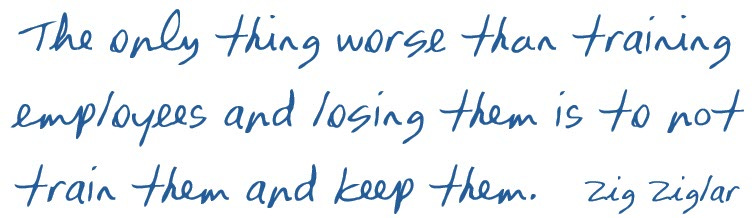 The only thing worse than training
employees and losing them is to not
train them and keep them. Zig Ziglar